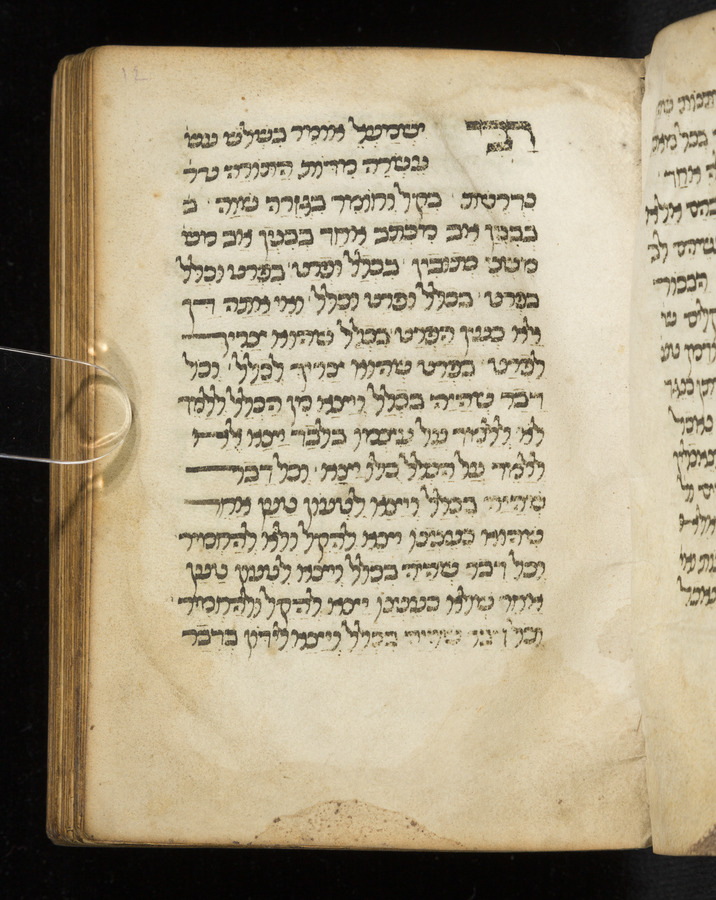 רבי ישמעאל אומר בשלש עש
עשרה מדות התורה
נדרשת בקל וחומר בגזרה שוה ב
בבנין אב מכתב אחד בבנין אב מש
משני כתובין בכלל ופרט בפרט וכלל
בפרט בכלל ופרט וכלל ואי אתה דן
אלא כעין הפרט בכלל שהוא צריך
לפרט בפרט שהוא צריך לכלל וכל
דבר שהיה בכלל ויצא מן הכלל ללמד
לא ללמד על עצמו בלבד יצא אלא
ללמד על הכלל כולו יצא וכל דבר
שהיה בכלל ויצא לטעון טעון אחד
שהוא כענינו יצא להקל ולא להחמיר
וכל דבר שהיה בכלל ויצא לטעון טעון
אחד שלא כענינו יצא להקל ולהחמיר
וכל דבר שהיה בכלל ויצא לידון בדבר